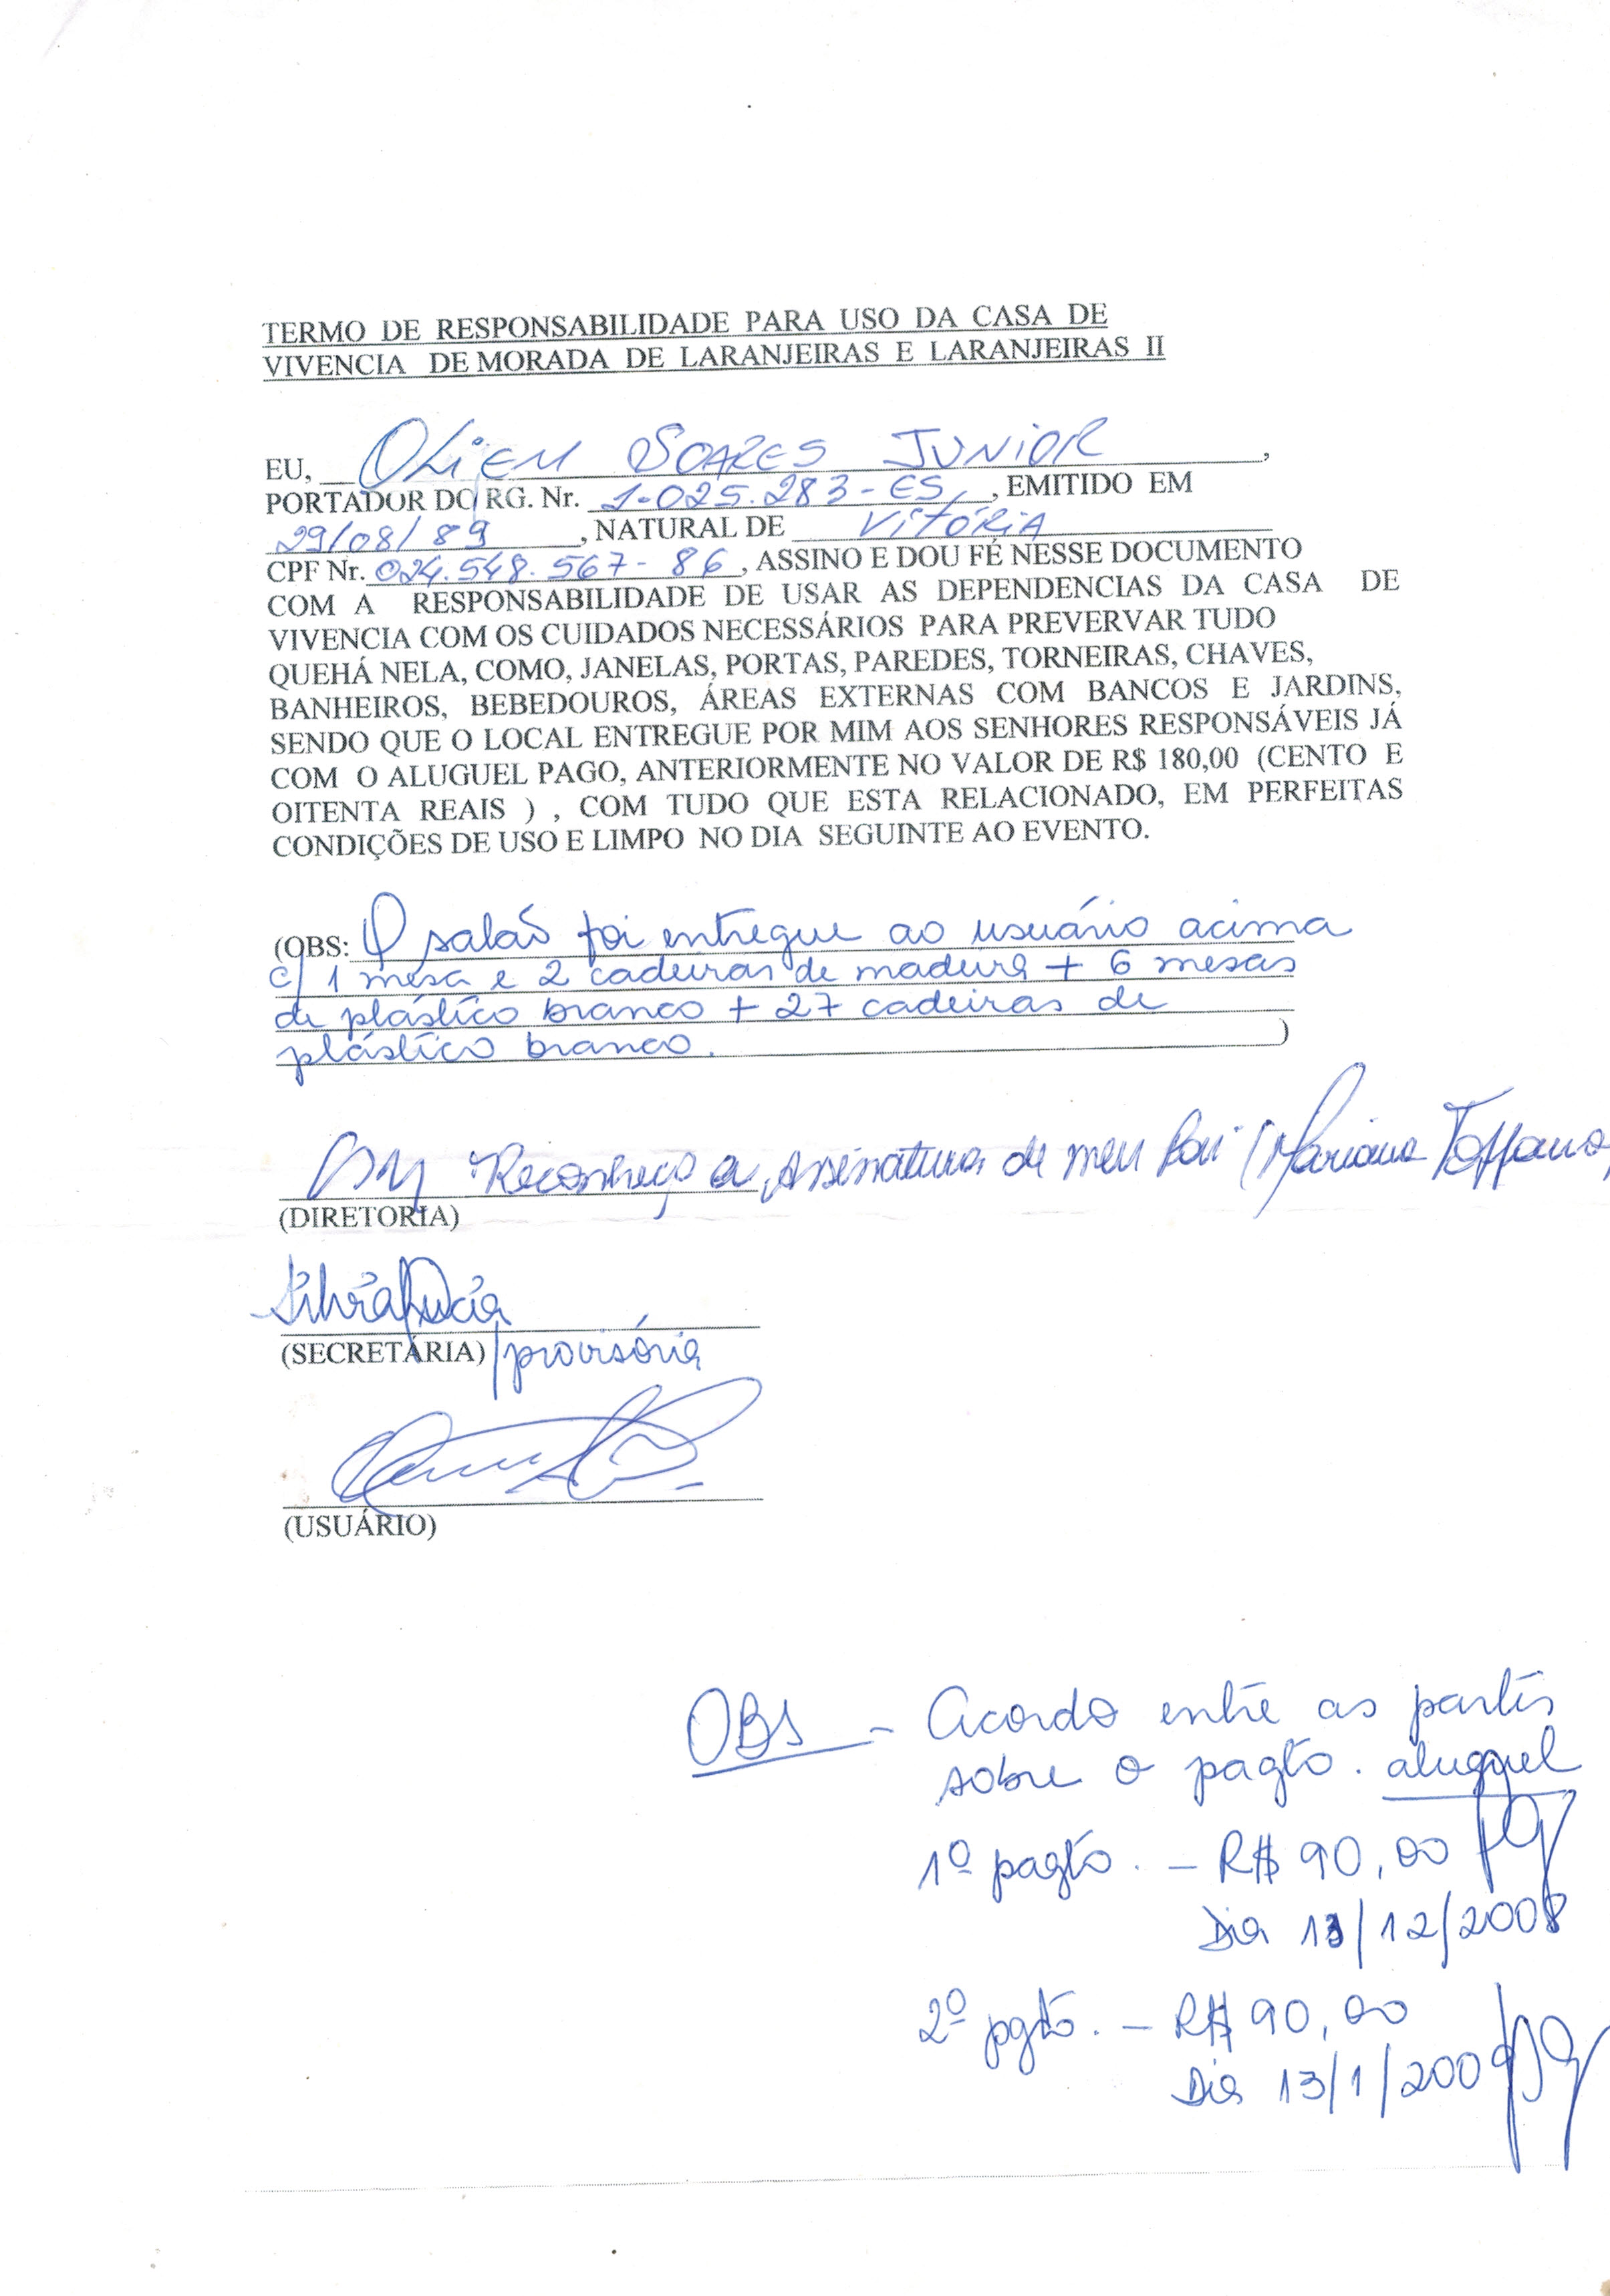 TERMO DE RESPONSABILIDADE PARA USO DA CASA DE
VIVENCIA DE MORADA DE LARANJEIRAS E LARANJEIRAS II
EU, SOARES JUNIOR,
PORTADOR DO RG. Nr. 1-025.283-ES, EMITIDO EM
29/08/89, NATURAL DE VITÓRIA
CPF Nr. 024.548.567-86, ASSINO E DOU FÉ NESSE DOCUMENTO
COM A RESPONSABILIDADE DE USAR AS DEPENDENCIAS DA CASA DE
VIVENCIA COM OS CUIDADOS NECESSÁRIOS PARA PREVERVAR TUDO
QUEHÁ NELA, COMO, JANELAS, PORTAS, PAREDES, TORNEIRAS, CHAVES,
BANHEIROS, BEBEDOUROS, ÁREAS EXTERNAS COM BANCOS E JARDINS,
SENDO QUE O LOCAL ENTREGUE POR MIM AOS SENHORES RESPONSÁVEIS JÁ
COM O ALUGUEL PAGO, ANTERIORMENTE NO VALOR DE R$ 180,00 (CENTO E
OITENTA REAIS ) , COM TUDO QUE ESTA RELACIONADO, EM PERFEITAS
CONDIÇÕES DE USO E LIMPO NO DIA SEGUINTE AO EVENTO.
(OBS: O salão foi entregue ao usuário acima
c/ 1 mesa e 2 cadeiras de madeira + 6 mesas
de plástico branco + 27 cadeiras de
plástico branco. )
Reconheço a Assinatura de meu Pai (Mariana Toffano)
(DIRETORIA)
Silvia Lucia
(SECRETÁRIA)/provisória
(USUÁRIO)
OBS - Acordo entre as partes
sobre o pagto. aluguel
1º pagto. - R$ 90,00 pg
Dia 13/12/2008
2º pgto. - R$ 90,00
Dia 13/1/2009 pg